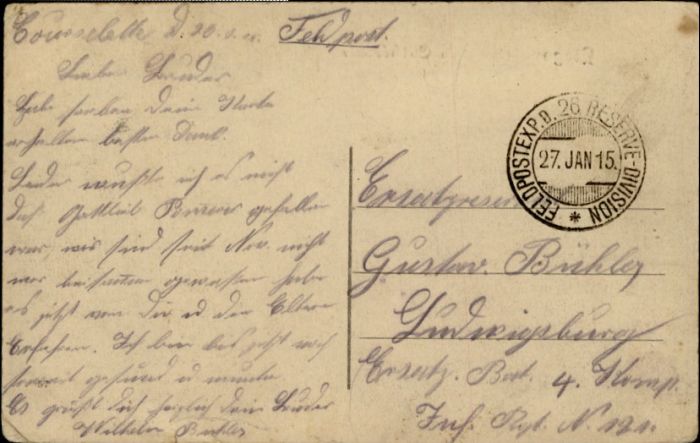 Courcelette d. 20.1.15. Feldpost.
Lieber Bruder
Habe soeben Dein Karte
erhalten besten Dank.
Leider wußte ich es nicht
daß Gottlieb gefallen
war, wir sind seit Nov. nicht
mer beisamen gewesen habe
es jetzt von Dir u den Eltern
Erfahren. Ich bin bis jetzt noch
soweit gesund u munter
Es grüßt Dich herzlich Dein Bruder
Wilhelm Bühler
FELDPOSTEXP. D. 26. RESERVE-DIVISION
27. JAN 15.
Gustav Bühler
Ludwigsburg
Ersatz. Bat. 4. Komp.
Inf. Rgt. N. 121.